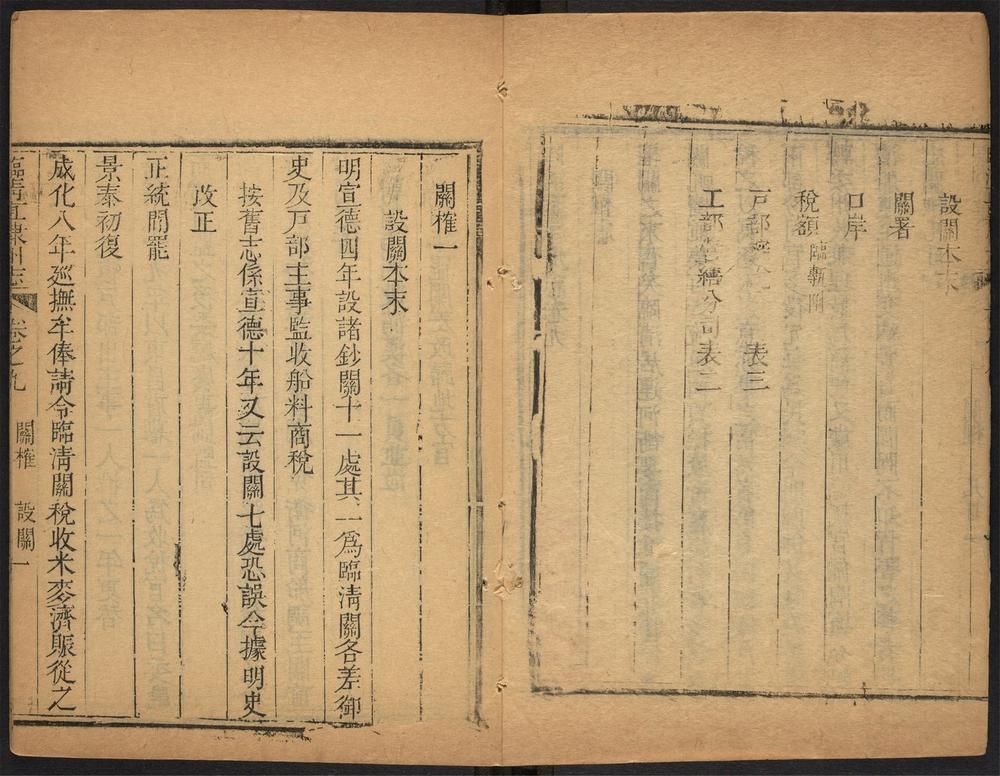 設關本末
關署
口岸
稅額
戶部 表三
工部營繕分司表二
關榷一
設關本末
明宣德四年設諸鈔關十一處其一爲臨淸關各差御
史及戶部主事監收船料商稅
按舊志係宣德十年又云設關七處恐誤今據明史
改正
正統間罷
景泰初復
成化八年巡撫牟俸請令臨淸關稅收米麥濟賑從之
臨淸直隸州志 卷之九 關榷 設關 一